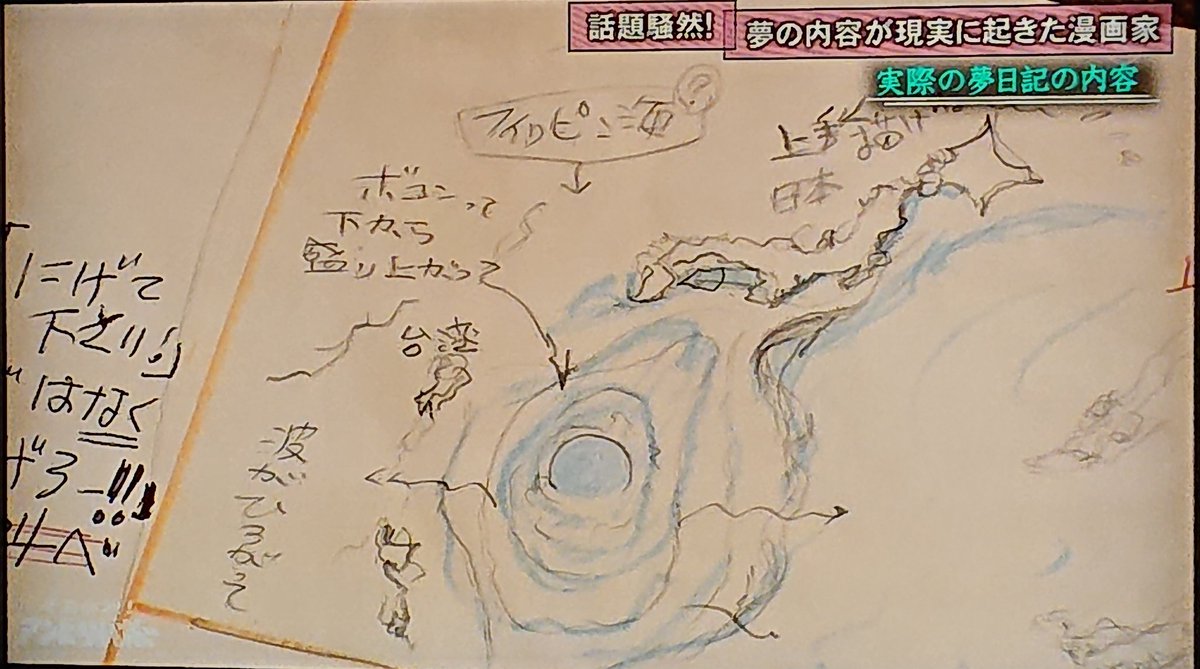 話題騒然!
夢の内容が現実に起きた漫画家
実際の夢日記の内容
フィリピン海
?
上手く描け
日本
ボコンって
下から
盛り上がって
台湾
波が
ひろがって
にげて
下さい」
はなく
げろー!!!